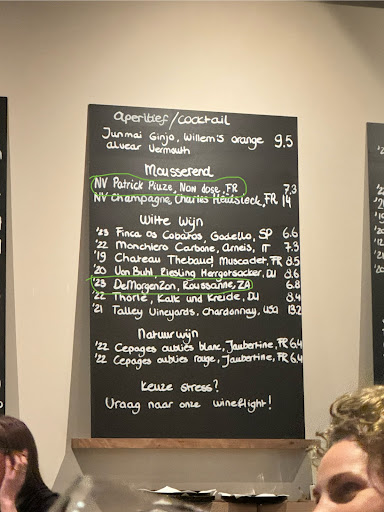 Aperitief/cocktail
Junmai Ginjo, Willem's orange 9.5
alvear Vermouth
Mousserend
NV Patrick Piuze, Non dose, FR 7.3
NV Champagne, Charles Heidsieck, FR 14
Witte Wijn
'23 Finca os Cobatos Godello, SP 6.6
'22 Monchiero Carbone, Arneis, IT 7.3
'19 Chateau Thebaud, Muscadet, FR 8.5
'20 Von Buhl, Riesling Herrgotsacker, DU 8.6
'23 DeMorgenzon, Roussanne, ZA 6.8
'22 Thörle, Kalk und Kreide, DU 8.4
'21 Talley Vineyards, Chardonnay, USA 13.2
Natuurwijn
'22 Cepages oubliés blanc, Jaubertine, FR 6.4
'22 Cepages oubliés rouge, Jaubertine, FR 6.4
Keuze stress?
Vraag naar onze wineflight!